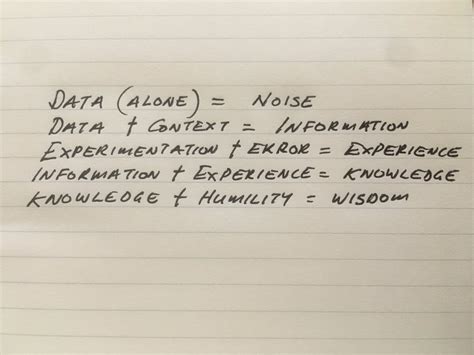 DATA (ALONE) = NOISE
DATA + CONTEXT = INFORMATION
EXPERIMENTATION + ERROR = EXPERIENCE
INFORMATION + EXPERIENCE = KNOWLEDGE
KNOWLEDGE + HUMILITY = WISDOM